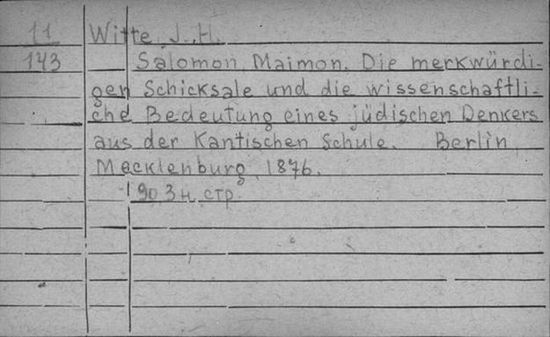 11
143
Witte, J. H.
Salomon Maimon. Die merkwürdi-
gen Schicksale und die wissenschaftli-
che Bedeutung eines jüdischen Denkers
aus der Kantischen Schule. Berlin,
Mecklenburg, 1876.
90 3 н. стр.